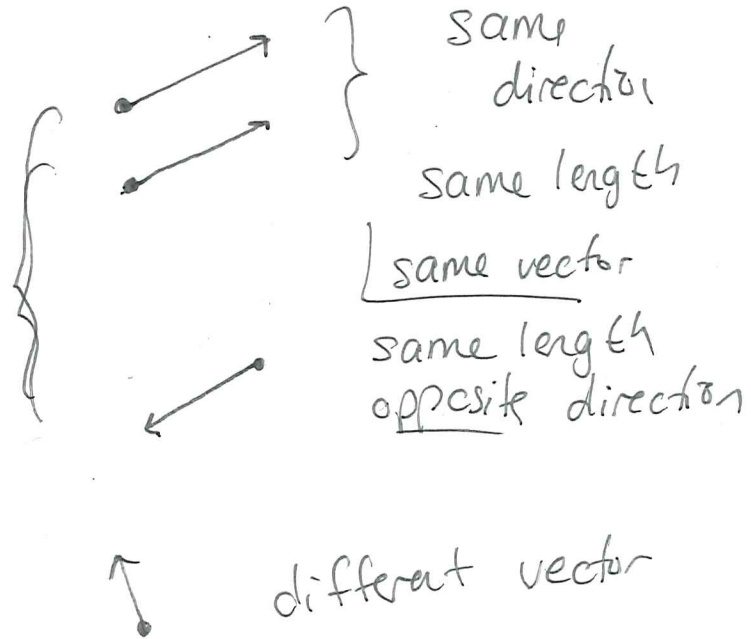 same
direction
same length
same vector
same length
opposite direction
different vector